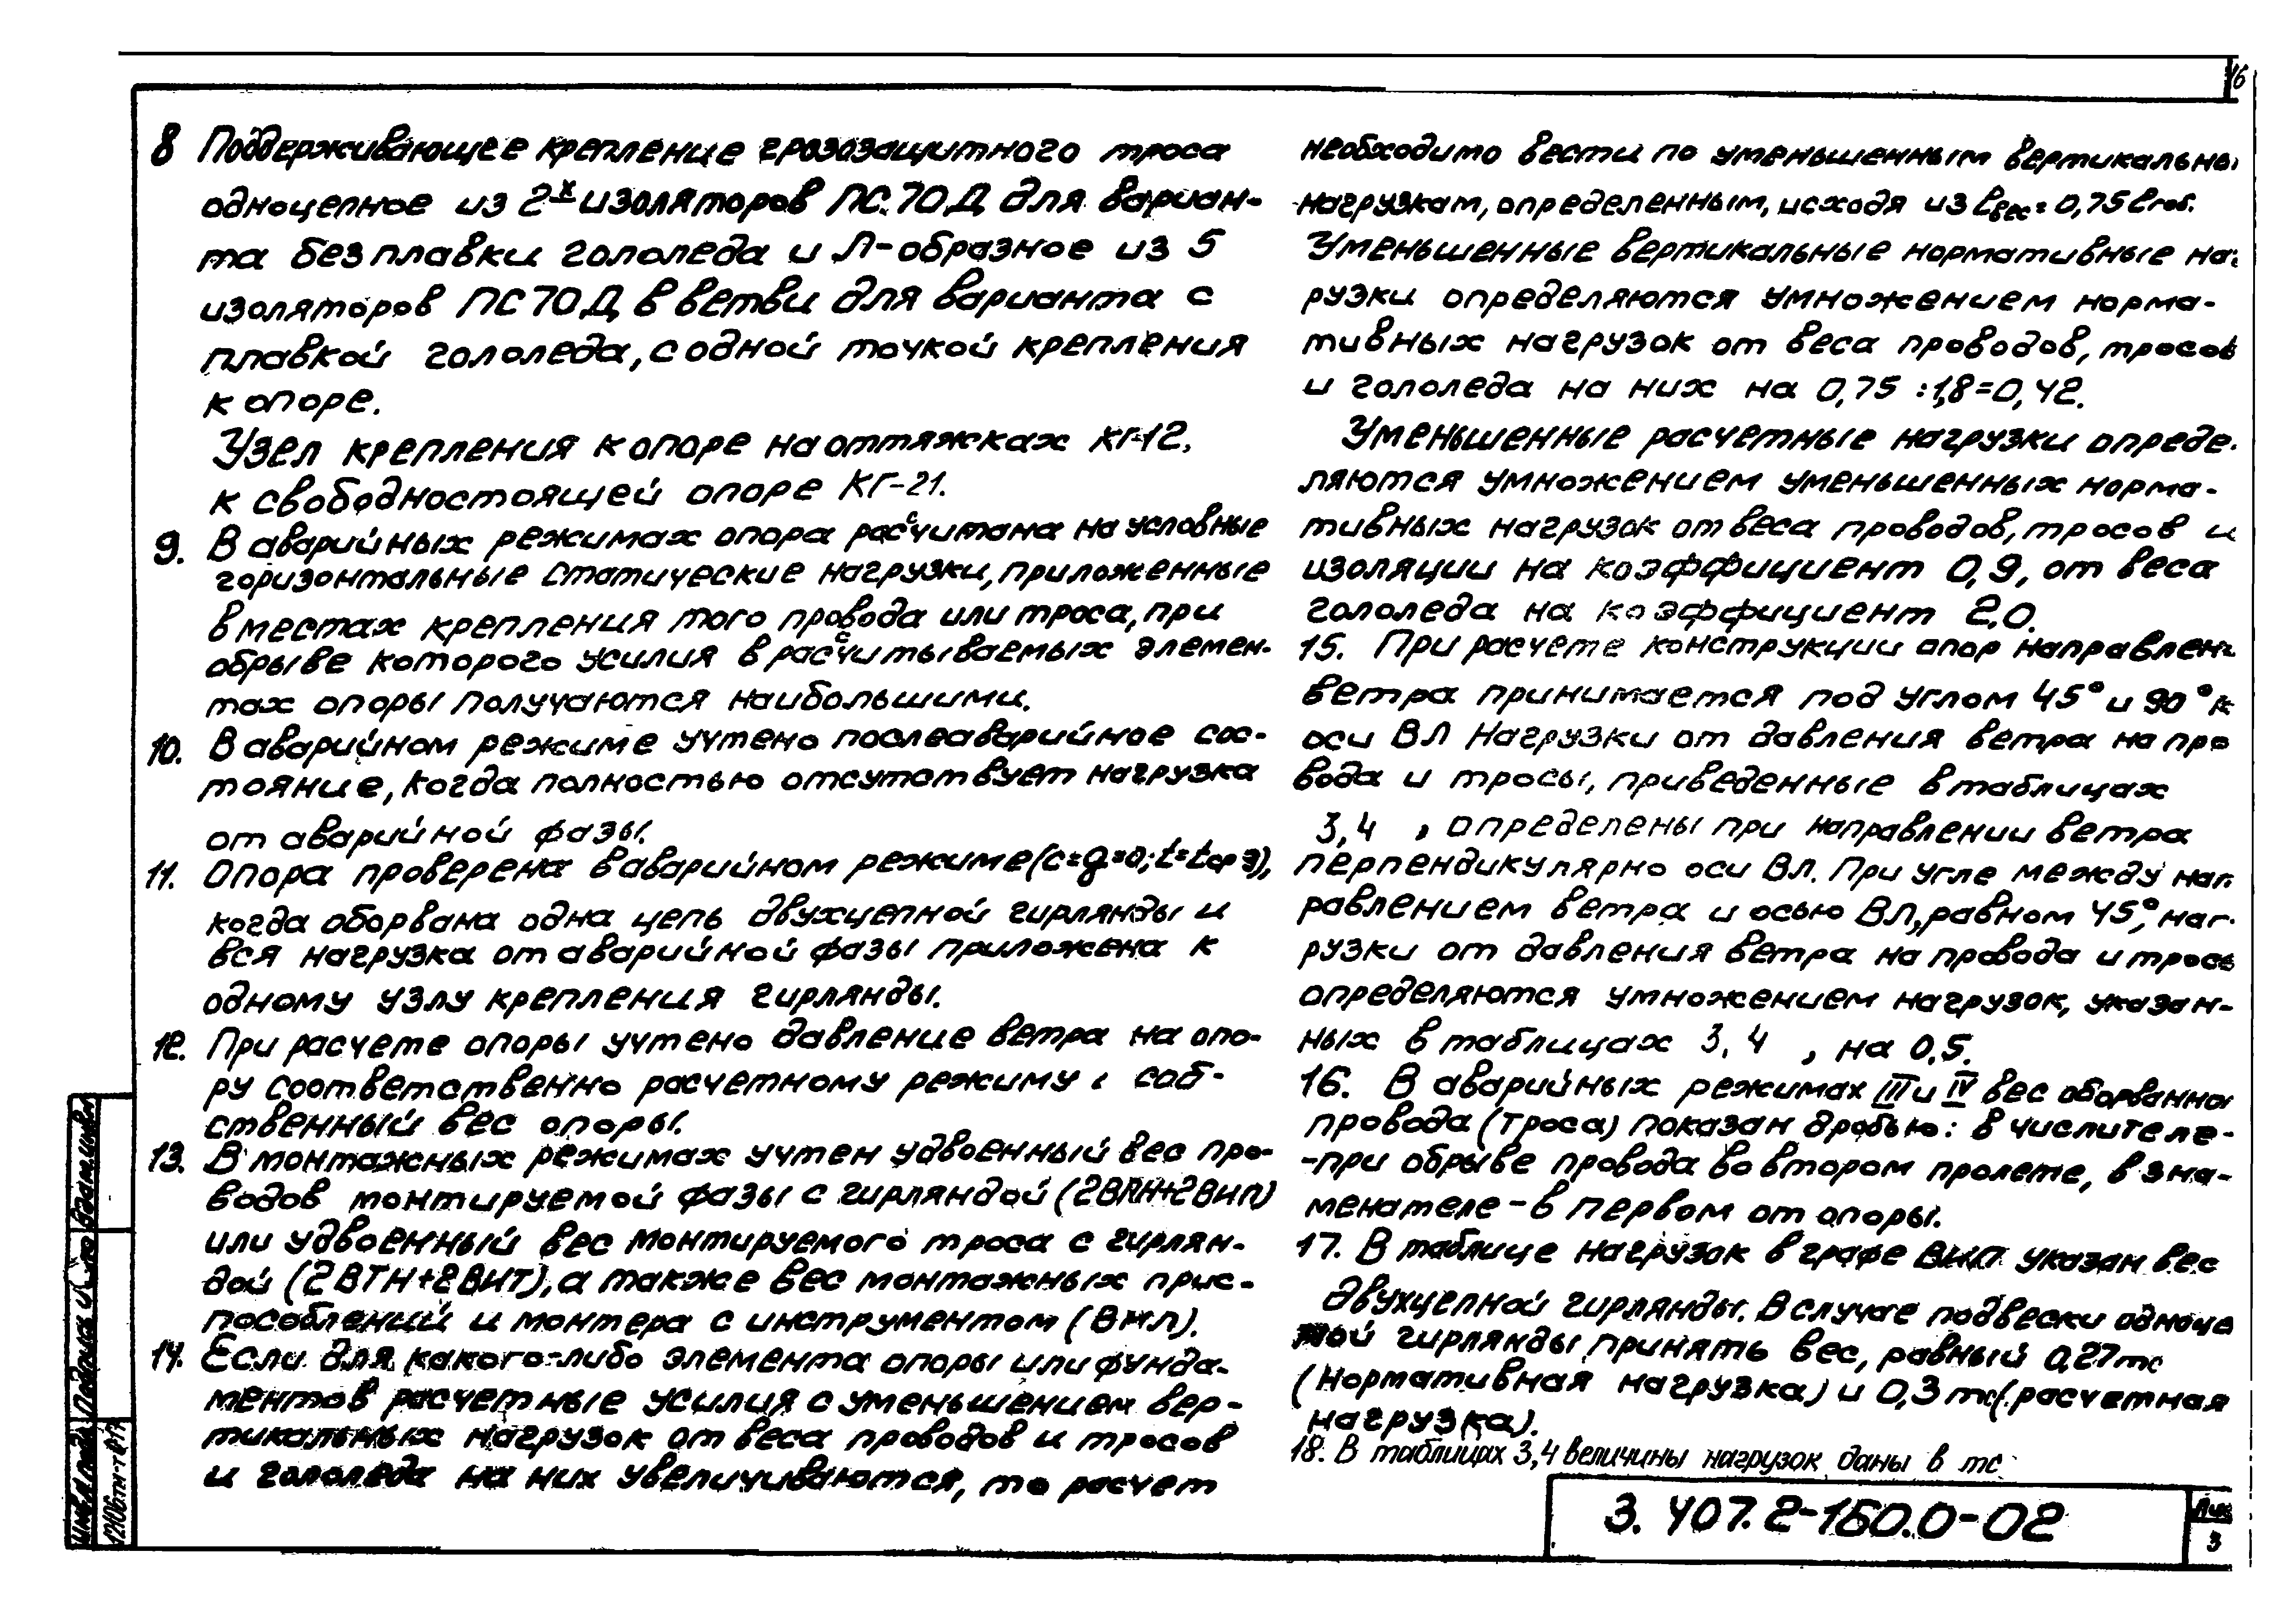 16
8 Поддерживающее крепление грозозащитного троса
одноцепное из 2х изоляторов ПС 70Д для вариан-
та без плавки гололеда и Л-образное из 5
изоляторов ПС70Д в ветви для варианта с
плавкой гололеда, с одной точкой крепления
к опоре.
Узел крепления к опоре на оттяжках КГ-12,
к свободностоящей опоре КГ-21.
9. В аварийных режимах опора рассчитана на условные
горизонтальные статические нагрузки, приложенные
в местах крепления того провода или троса, при
обрыве которого усилия в рассчитываемых элемен-
тах опоры получаются наибольшими.
10. В аварийном режиме учтено послеаварийное сос-
тояние, когда полностью отсутствует нагрузка
от аварийной фазы.
11. Опора проверена в аварийном режиме (c=q=0; t=tср э),
когда оборвана одна цепь двухцепной гирлянды и
вся нагрузка от аварийной фазы приложена к
одному узлу крепления гирлянды.
12. При расчете опоры учтено давление ветра на опо-
ру соответственно расчетному режиму и соб-
ственный вес опоры.
13. В монтажных режимах учтен удвоенный вес про-
водов монтируемой фазы с гирляндой (2ВПН+2ВИП)
или удвоенный вес монтируемого троса с гирлян-
дой (2ВТН+2ВИТ), а также вес монтажных прис-
пособлений и монтера с инструментом (ВМЛ).
14. Если для какого-либо элемента опоры или фунда-
ментов расчетные усилия с уменьшением вер-
тикальных нагрузок от веса проводов и тросов
и гололеда на них увеличиваются, то расчет
необходимо вести по уменьшенным вертикальны
нагрузкам, определенным, исходя из lвес = 0,75 lгаб.
Уменьшенные вертикальные нормативные наг
рузки определяются умножением норма-
тивных нагрузок от веса проводов, тросов
и гололеда на них на 0,75 : 1,8=0,42.
Уменьшенные расчетные нагрузки опреде-
ляются умножением уменьшенных норма-
тивных нагрузок от веса проводов, тросов и
изоляции на коэффициент 0,9, от веса
гололеда на коэффициент 2,0.
15. При расчете конструкции опор направлен
ветра принимается под углом 45° и 90° к
оси ВЛ Нагрузки от давления ветра на про
вода и тросы, приведенные в таблицах
3,4 , определены при направлении ветра
перпендикулярно оси ВЛ. При угле между нап
равлением ветра и осью ВЛ, равном 45°, наг-
рузки от давления ветра на провода и тросы
определяются умножением нагрузок, указан-
ных в таблицах 3, 4 , на 0,5.
16. В аварийных режимах III и IV вес оборванног
провода (троса) показан дробью: в числителе-
-при обрыве провода во втором пролете, в зна-
менателе - в первом от опоры.
17. В таблице нагрузок в графе ВИП указан вес
двухцепной гирлянды. В случае подвески одноце
пной гирлянды принять вес, равный 0,27тс
(нормативная нагрузка) и 0,3 тс (расчетная
нагрузка).
18. В таблицах 3,4 величины нагрузок даны в тс
3.407.2-160.0-02
Лис
3
Взам.инв.№
Подпись и
Инв.№ подл.